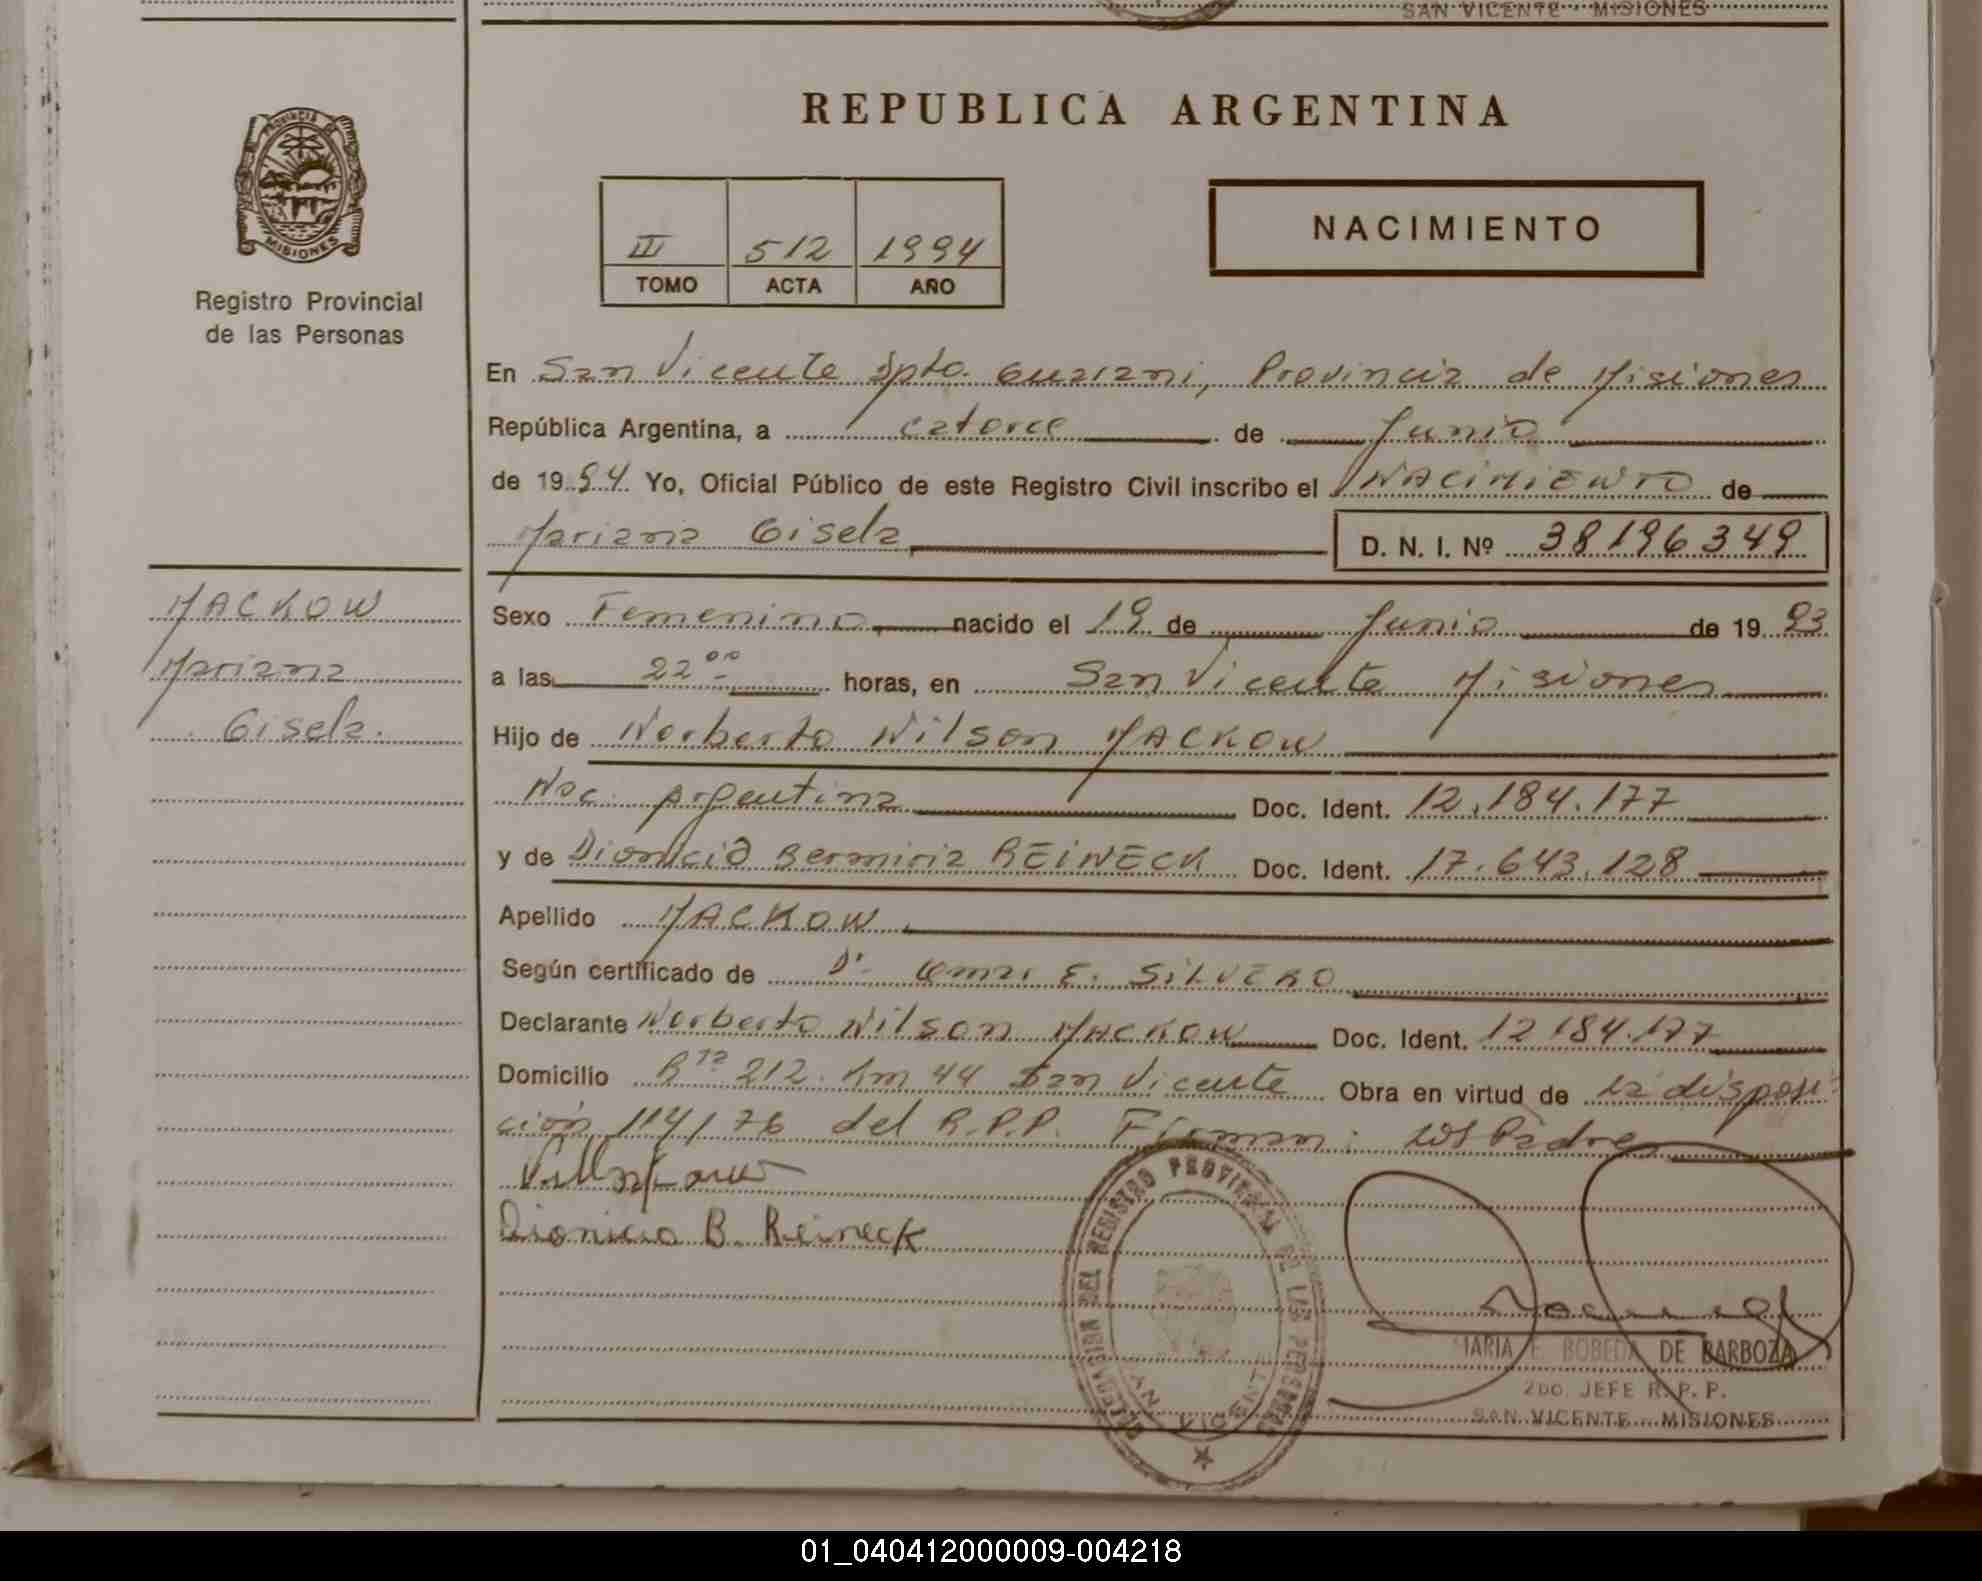 SAN VICENTE - MISIONES
REPUBLICA ARGENTINA
PROVINCIA DE
MISIONES
Registro Provincial
de las Personas
III 512 1994
TOMO ACTA AÑO
NACIMIENTO
En San Vicente Dpto. Guarani, Provincia de Misiones
República Argentina, a catorce de Junio
de 1994 Yo, Oficial Público de este Registro Civil inscribo el NACIMIENTO de
Mariana Gisela D. N. I. Nº 38196349
MACKOW
Mariana
Gisela.
Sexo Femenino nacido el 19 de Junio de 1993
a las 22 00 horas, en San Vicente Misiones
Hijo de Norberto Wilson MACKOW
Nac. Argentina Doc. Ident. 12.184.177
y de Dionicia REINECK Doc. Ident. 17.643.128
Apellido MACKOW
Según certificado de Dr. Omar E. SILVERO
Declarante Norberto Wilson MACKOW Doc. Ident. 12 184.177
Domicilio Rta 212 Km 44 San Vicente Obra en virtud de la disposi-
ción 114/76 del R.P.P. Firman: Los Padres
Dionicia B. Reineck
DELEGACION DEL REGISTRO PROVINCIAL DE LAS PERSONAS
SAN VICENTE
MARIA E. BOBEDA DE BARBOZA
2DO. JEFE R. P. P.
SAN VICENTE - MISIONES
01_040412000009-004218